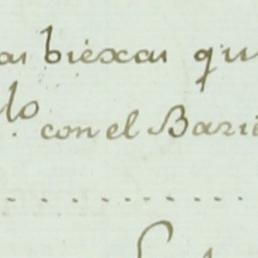 as biexas qu
lo con el Bari